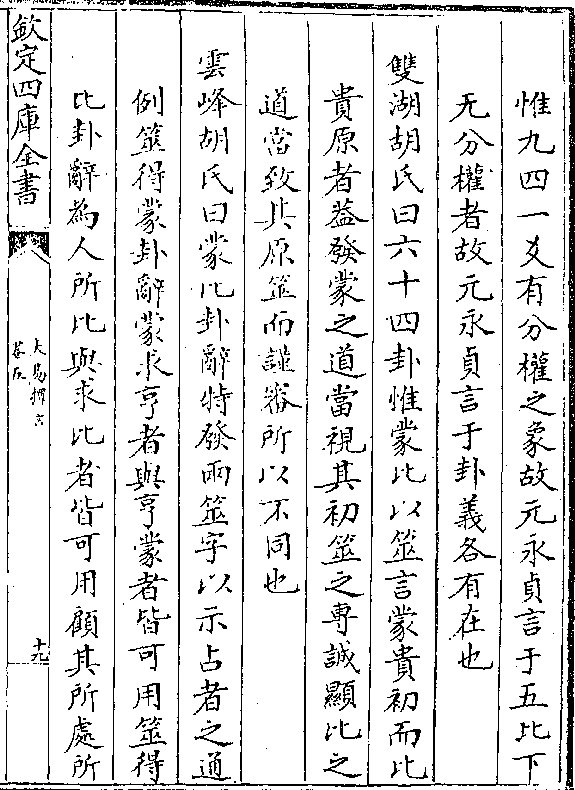 惟九四一爻有分權之象故元永貞言于五比下
无分權者故元永貞言于卦義各有在也
雙湖胡氏曰六十四卦惟蒙比以筮言蒙貴初而比
貴原者葢發蒙之道當視其初筮之專誠顯比之
道當致其原筮而謹審所以不同也
雲峰胡氏曰蒙比卦辭特發兩筮字以示占者之通
例筮得蒙卦辭蒙求亨者與亨蒙者皆可用筮得
比卦辭為人所比與求比者皆可用顧其所處所
欽定四庫全書
大易擇言
卷五
十九